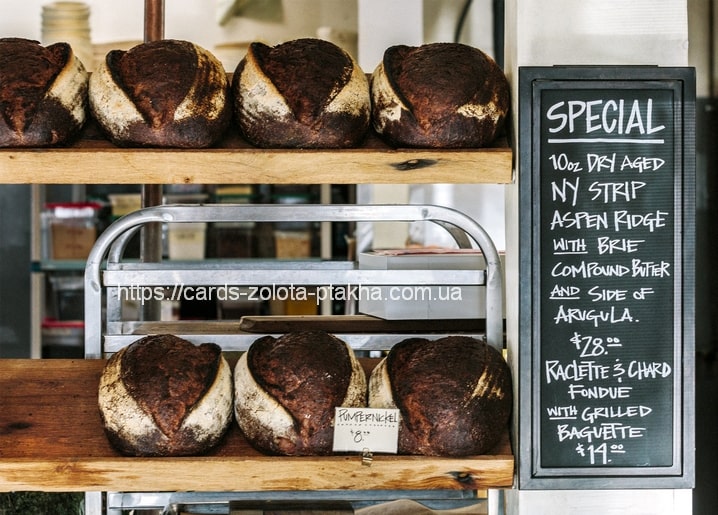 SPECIAL
10oz DRY AGED
NY STRIP
ASPEN RIDGE
WITH BRIE
COMPOUND BUTTER
AND SIDE OF
ARUGULA.
$28.00
RACLETTE & CHARD
FONDUE
WITH GRILLED
BAGUETTE
$14.00
https://cards-zolota-ptakha.com.ua
PUMPERNICKEL